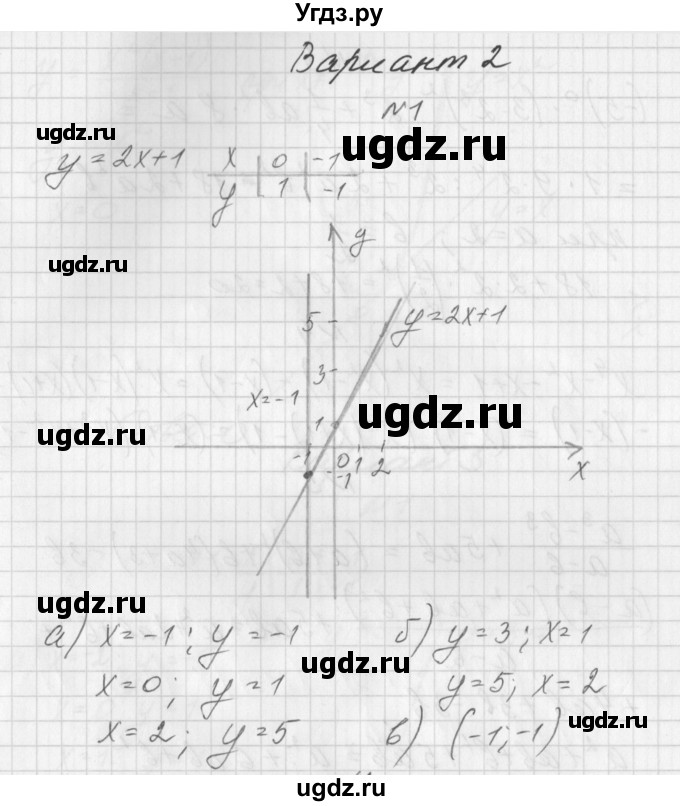 Угдз.ру
Вариант 2
№1
ugdz.ru
ugdz.ru
y = 2x+1
x | 0 | -1
y | 1 | -1
ugdz.ru
y
5
y=2x+1
3
x=-1
ugdz.ru
1
ugdz.ru
-1 0 1 2 x
-1
ugdz.ru
а) x=-1; y=-1
б) y=3; x=1
ugdz.ru
x=0; y=1
y=5; x=2
ugdz.ru
x=2; y=5
в) (-1;-1)
ugdz.ru